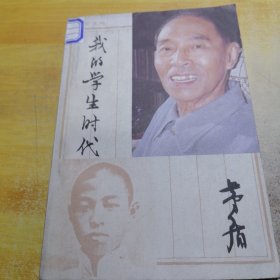 我的学生时代
茅盾